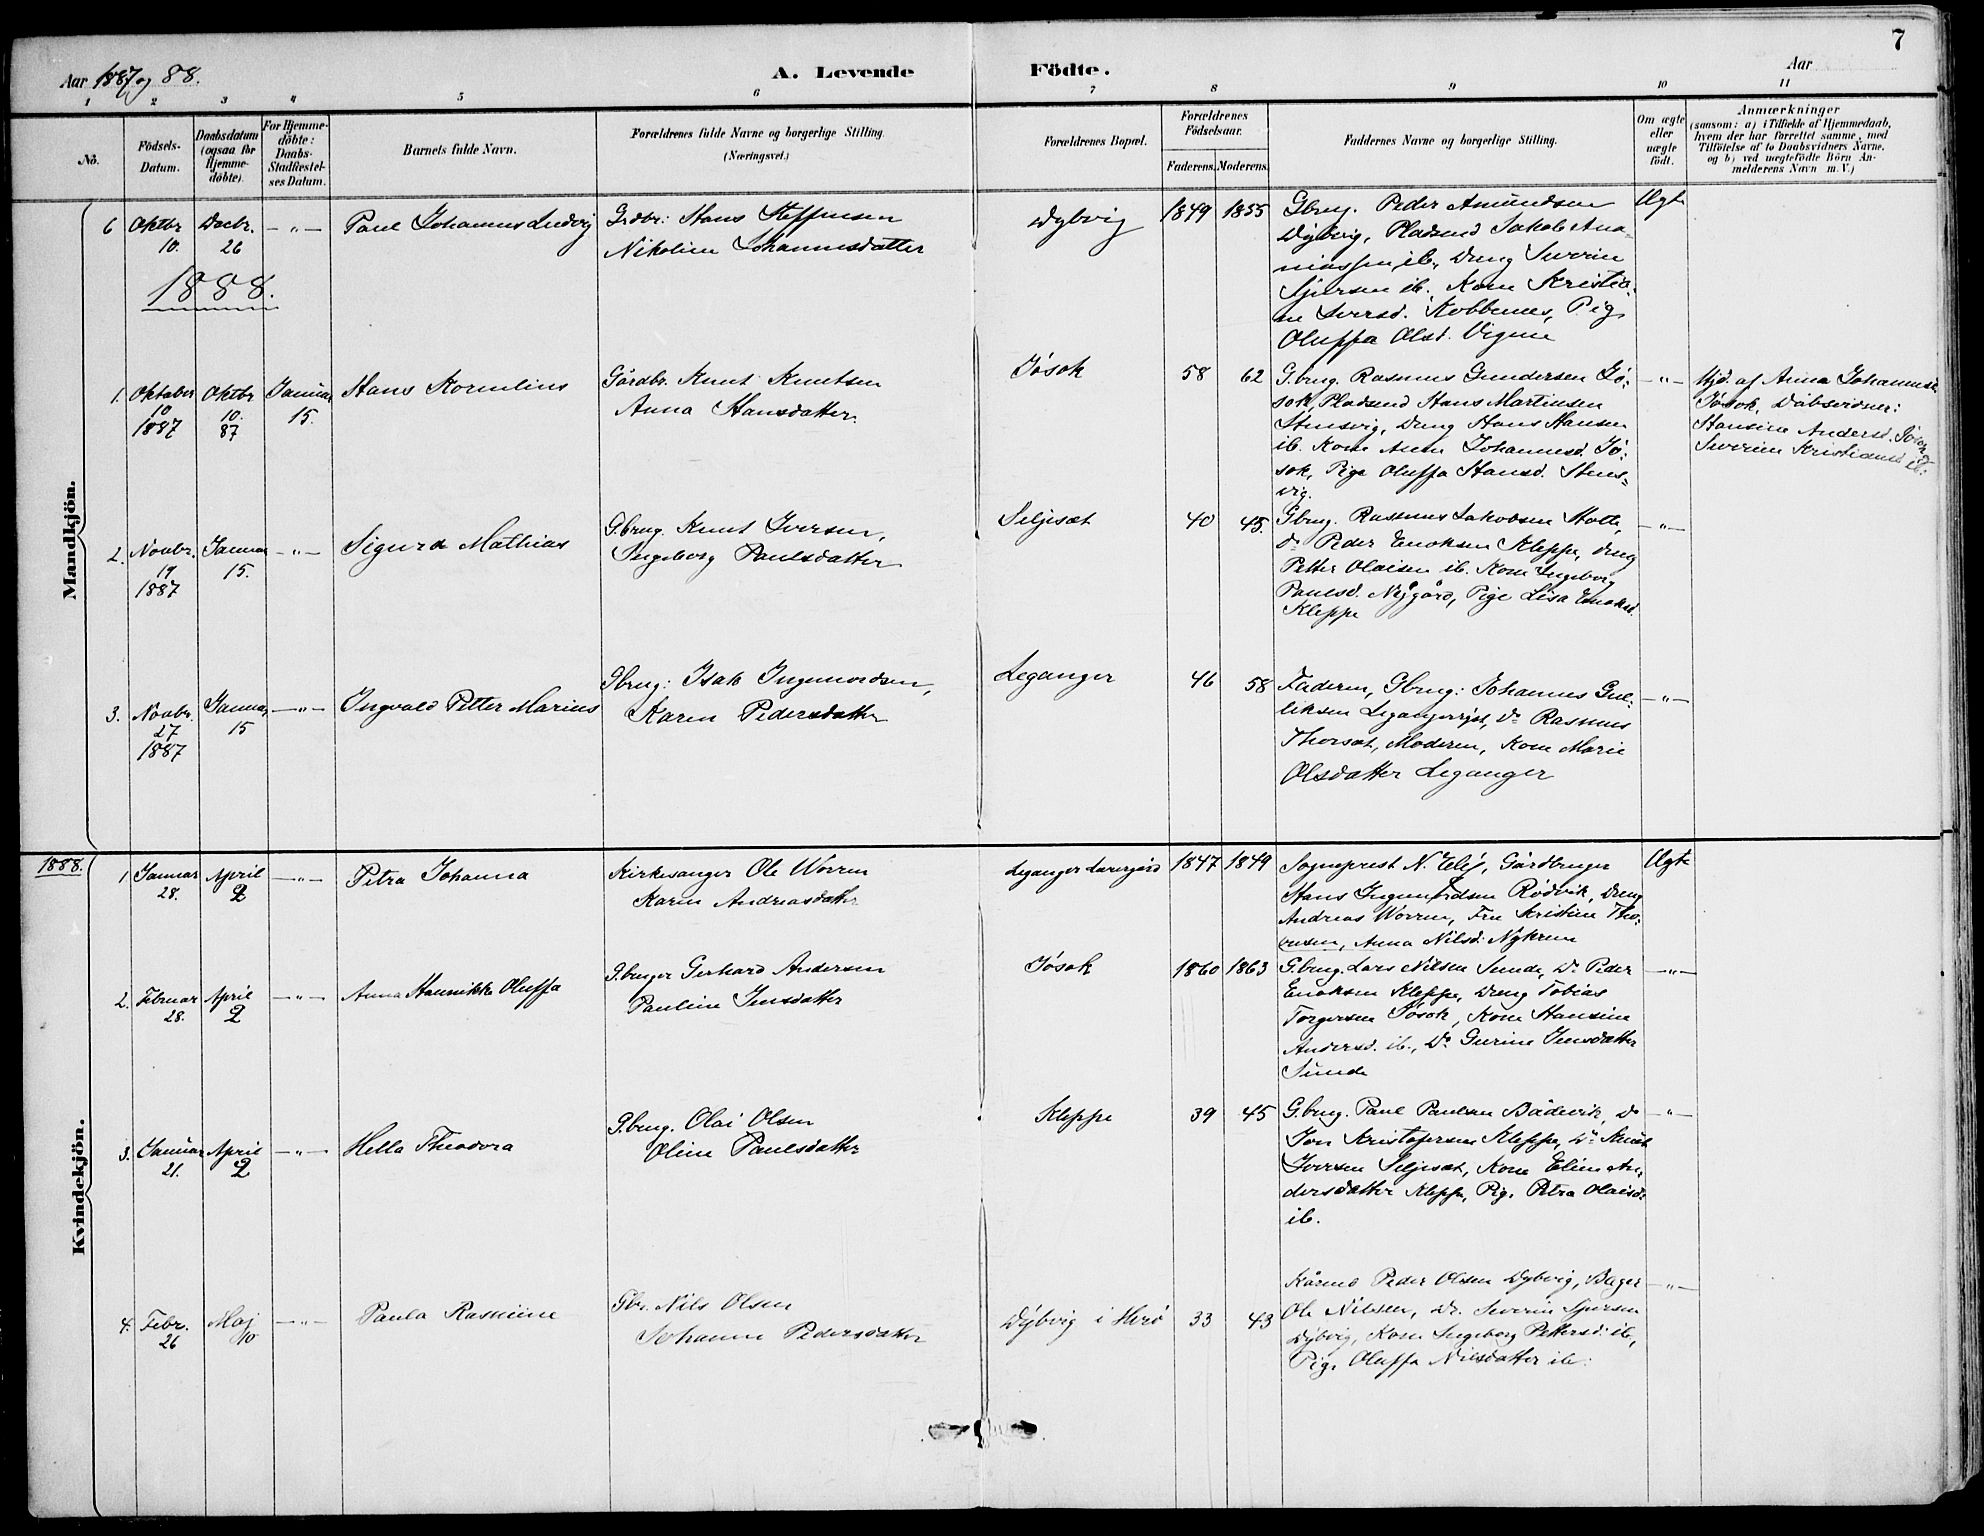 7
Aar 1887 og 88.
A. Levende Födte.
Aar
1 2 3 4 5 6 7 8 9 10 11
No.
Födsels-Datum.
Daabsdatum (ogsaa for Hjemme-döbte).
For Hjemme-döbte: Daabs-Stadfæstel-ses Datum.
Barnets fulde Navn.
Forældrenes fulde Navne og borgerlige Stilling.
(Næringsvei.)
Forældrenes Bopæl.
Forældrenes Födselsaar.
Faderens. Moderens.
Faddernes Navne og borgerlige Stilling.
Om ægte eller uægte födt.
Anmærkninger
(saasom: a) i Tilfælde af Hjemmedaab, hvem der har forrettet samme, med Tilföielse af to Daabsvidners Navne, og b) ved uægtefödte Börn An-melderens Navn m. V.)
Mandkjön.
6 Oktbr 10. Decbr. 26 - " - Paul Johannes Ludvig
Grdbr: Hans Steffensen
Nikoline Johannesdatter
Dybvig 1849 1855
Gbrug. Peder Amundsen
Dybvig, Pladsmd Jakob Ana-
niassen ib., Dreng Severin
Sjursen ib. Kone Kristia-
ne Iversd. Kobbenes, Pige
Oluffa Olsd. Vigene
Ægte
1888.
1. Oktober 10 1887 Oktbr 10. 87 Januar 15. Hans Kornelius
Gårdbr. Knut Knutsen
Anna Hansdatter.
Jøsok 58 62
G.brug. Rasmus Gundersen Jø-
sok, Pladsmd Hans Martinsen
Stensvig, Dreng Hans Hansen
ib. Kone Anne Johannesd. Jø-
sok, Pige Oluffa Hansd. Stens-
vig.
- " -
Hjd. af Anna Johannesd.
Jøsok, Dåbsvidner:
Hansine Andersd. Jøsok
Severine Kristiansd ib.
2. Novbr. 19 1887 Januar 15. - " - Sigurd Mathias
Gbrug. Knut Iversen,
Ingeborg Paulsdatter
Seljesæt 40 45.
Gbrug. Rasmus Jakobsen Stolte,
do Peder Enoksen Kleppe, dreng
Petter Olaisen ib. Kone Ingeborg
Paulsd. Nygård, Pige Lisa Enoksd.
Kleppe
- " -
3. Novbr. 27 1887 Januar 15 - " - Ingvald Petter Marius
Gbrug: Isak Ingemordsen,
Karen Pedersdatter
Leganger 46 58
Faderen, Gbrug: Johannes Gul-
liksen Legangerejde, do Rasmus
Thorsæt, Moderen, Kone Marie
Olsdatter Leganger
- " -
Kvindekjön.
1888.
1 Januar 28. April 2 - " - Petra Johanna
Kirkesanger Ole Worren
Karen Andreasdatter
Leganger Lærergård 1847 1849
Sogneprest N. , Gårdbruger
Hans Ingemordsen Rødvik, Dreng
Andreas Worren, Fru Kristine Tho-
resen, Anna Nilsd. Nykrem
Ægte
2. Februar 28. April 2 - " - Anna Hannikke Oluffa
G.bruger Gerhard Andersen
Pauline Jensdatter
Jøsok 1860 1863
G.brug. Lars Nilsen Sunde, Do Peder
Enoksen Kleppe, Dreng Tobias
Torgersen Jøsok, Kone Hansine
Andersd. ib., Do Gurine Jensdatter
Sunde
- " -
3. Januar 21. April 2 - " - Hella Theodora
G.brug. Olai Olsen
Oline Paulsdatter
Kleppe 39 45
G.brug. Paul Paulsen Bådsvik, do
Jon Kristofersen Kleppe, Do Knut
Iversen Seljesæt, Kone Eline An-
dersdatter Kleppe, Pige Petra Olaisd.
ib.
- " -
4. Febr. 26 Maj 10 - " - Paula Rasmine
Gbr. Nils Olsen
Johanne Pedersdatter
Dybvig i Herø 33 43
Kårmd Peder Olsen Dybvig, Bager
Ole Nilssen, Dr. Severin Sjursen
Dybvig, Kone Ingeborg Pettersd. ib,
Pige Oluffa Nilsdatter ib.
- " -